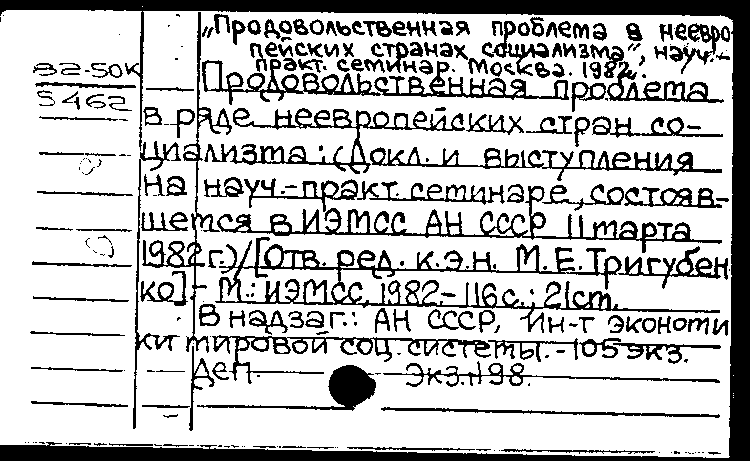 „Продовольственная проблема в неевро-
пейских странах социализма", науч.-
практ. семинар. Москва. 1982.
82-50К
5462
Продовольственная проблема
в ряде неевропейских стран со-
циализма: (Докл. и выступления
на науч.-практ. семинаре, состояв-
шемся в ИЭМСС АН СССР 11 марта
1982 г.)/[Отв. ред. к.э.н. М.Е.Тригубен
ко].- М.: ИЭМСС, 1982.- 116 с.; 21 cm.
В надзаг.: АН СССР, Ин-т экономи
ки мировой соц. системы. - 105 экз.
Деп. Экз. 1198.